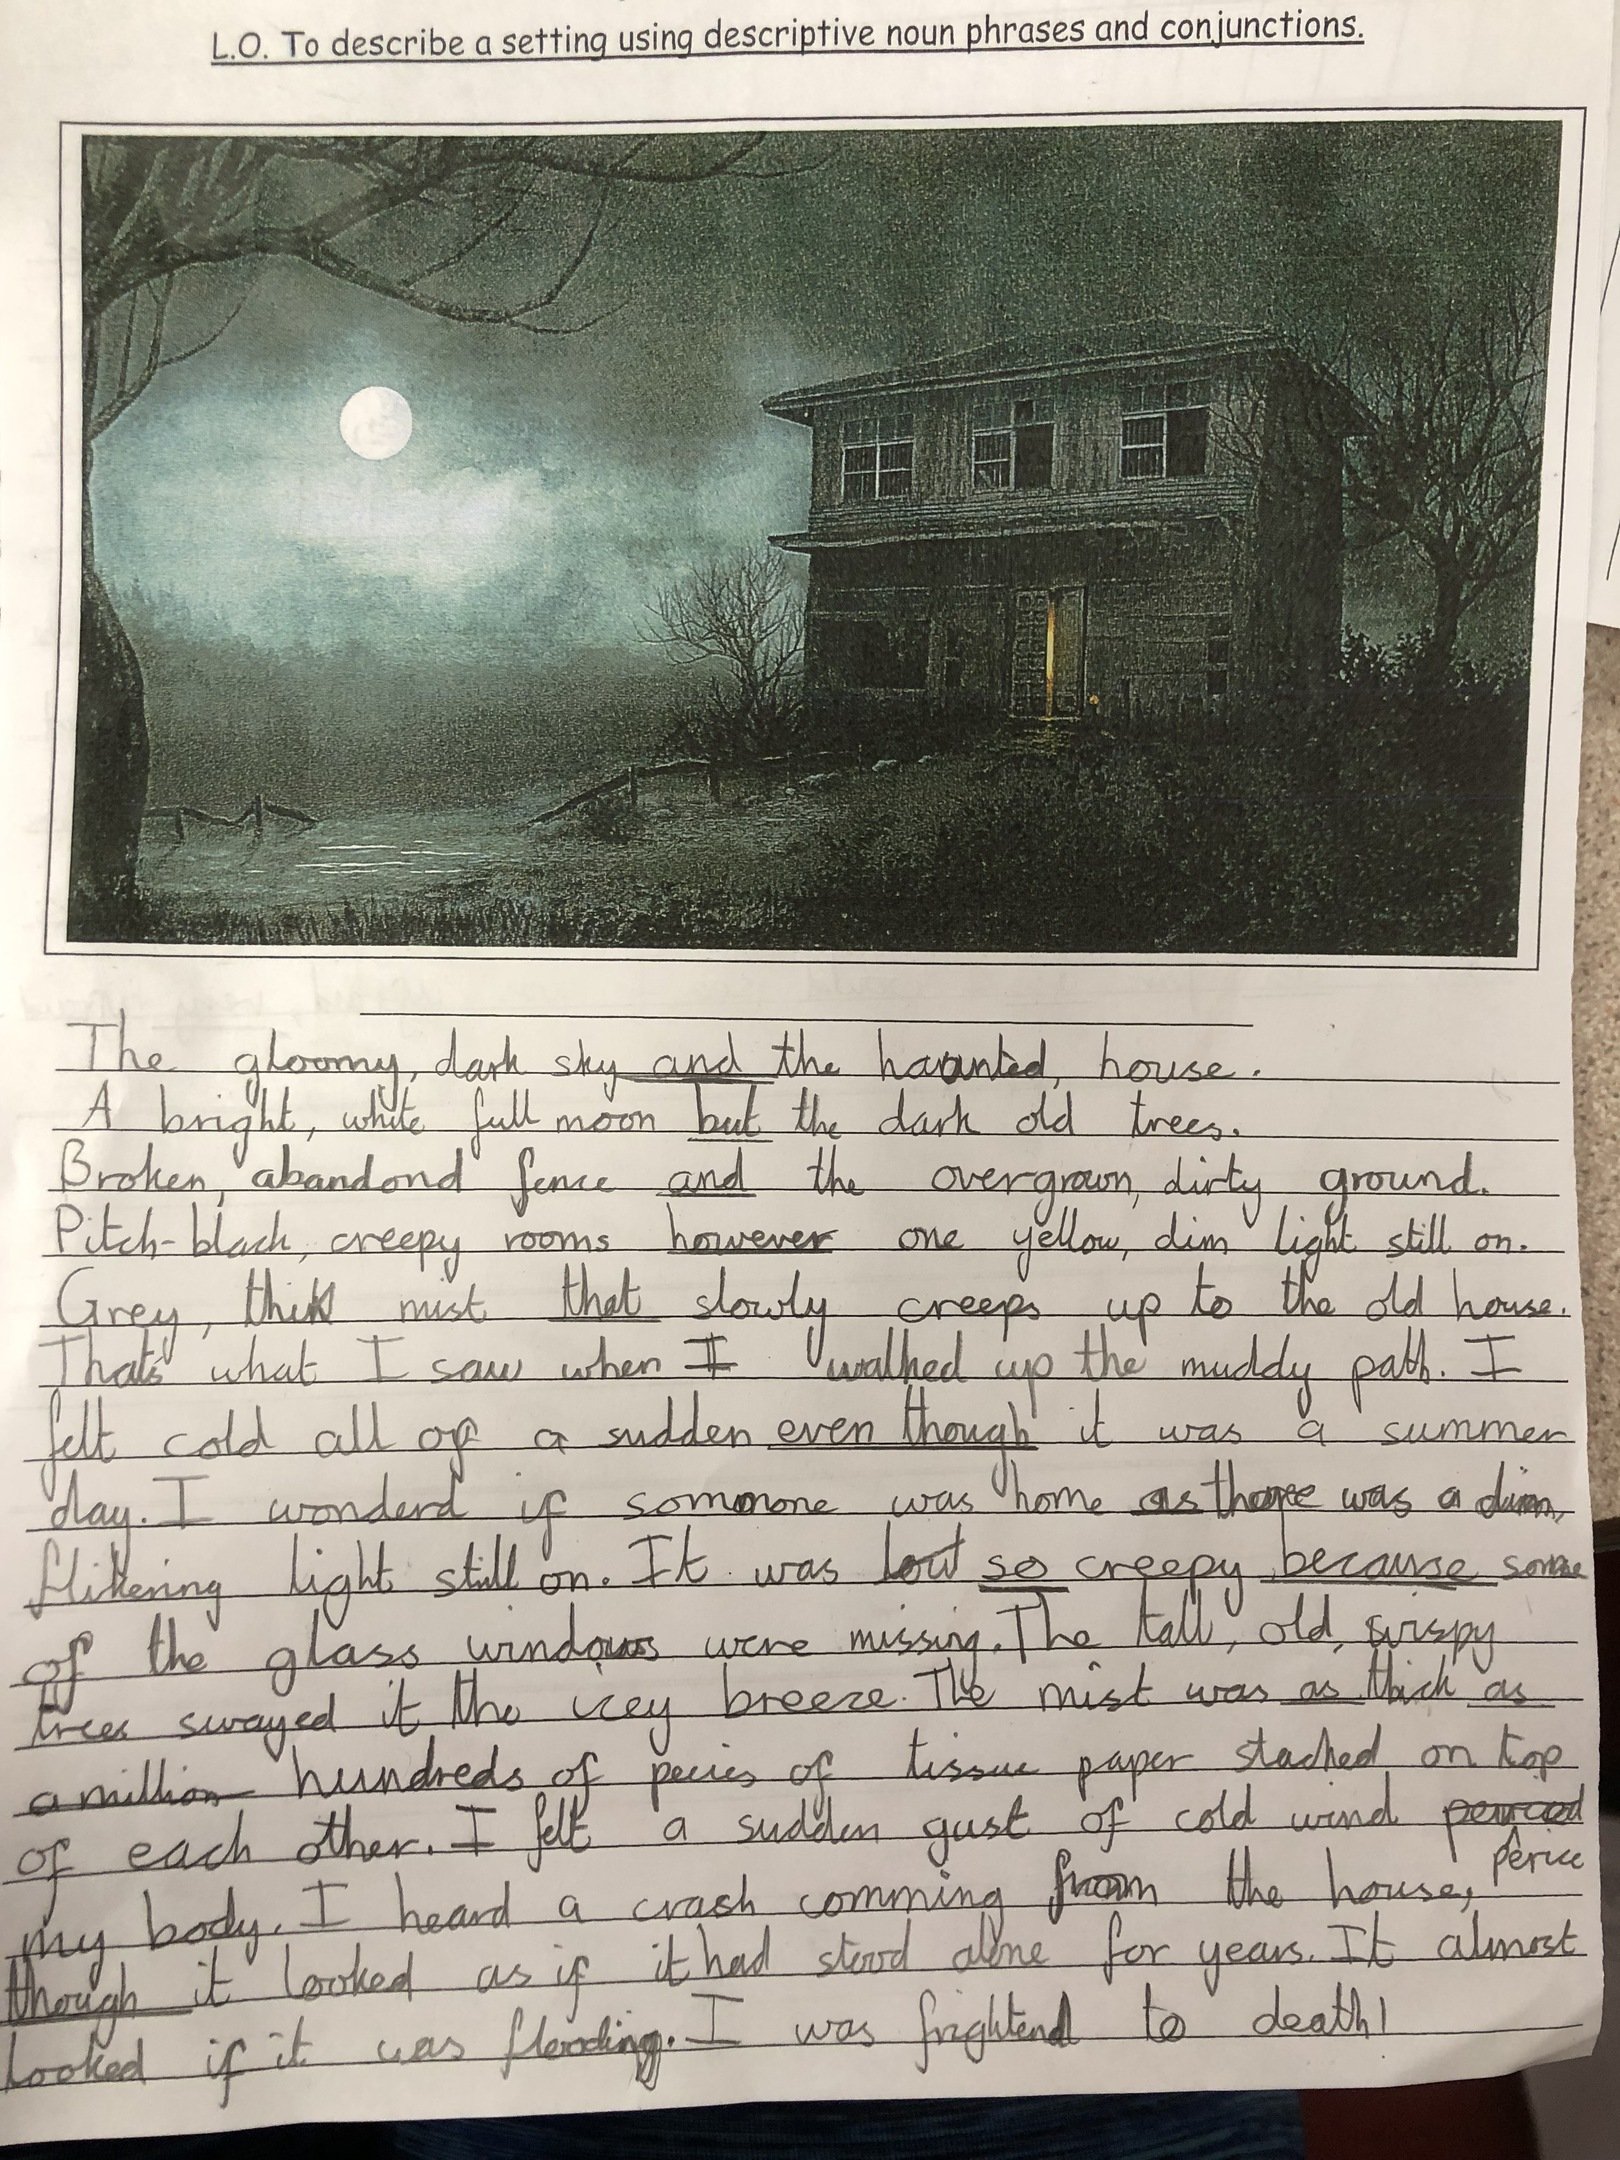 L.O. To describe a setting using descriptive noun phrases and conjunctions.
The gloomy, dark sky and the haunted, house.
A bright, white full moon but the dark old trees.
Broken, abandond fence and the overgrown, dirty ground.
Pitch-black, creepy rooms however one yellow, dim light still on.
Grey, thick mist that slowly creeps up to the old house.
That's what I saw when I walked up the muddy path. I
felt cold all of a sudden even though it was a summer
day. I wonderd if somonone was home as there was a dim,
flikering light still on. It was so creepy because some
of the glass windows were missing. The tall, old, wispy
trees swayed it the icey breeze. The mist was as thick as
a million hundreds of pecies of tissue paper stacked on top
of each other. I felt a sudden gust of cold wind
perice
my body. I heard a crash comming from the house,
though it looked as if it had stood alone for years. It almost
looked if it was flooding. I was frightend to death!